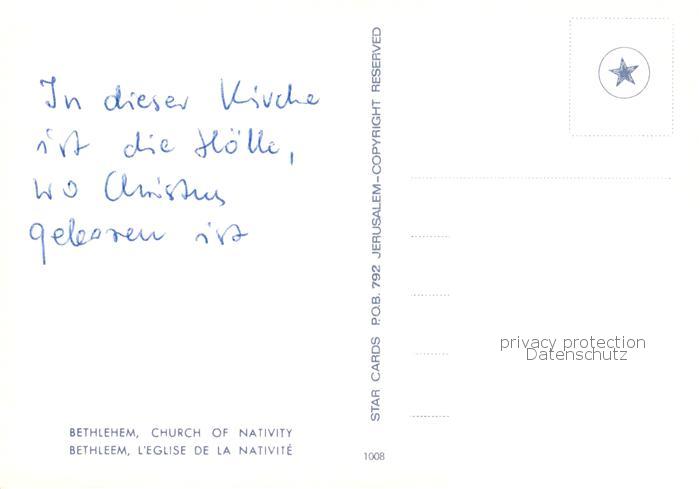 In dieser Kirche
ist die Hölle,
wo Christus
geboren ist
BETHLEHEM, CHURCH OF NATIVITY
BETHLEEM, L'EGLISE DE LA NATIVITÉ
STAR CARDS P.O.B. 792 JERUSALEM–COPYRIGHT RESERVED
1008
privacy protection
Datenschutz